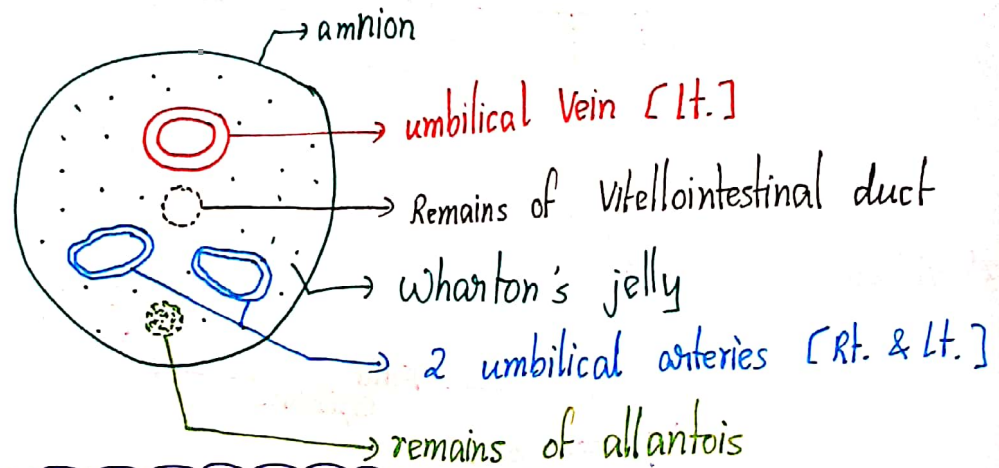 amnion
umbilical Vein [Lt.]
Remains of Vitellointestinal duct
Wharton's jelly
2 umbilical arteries [Rt. & Lt.]
remains of allantois